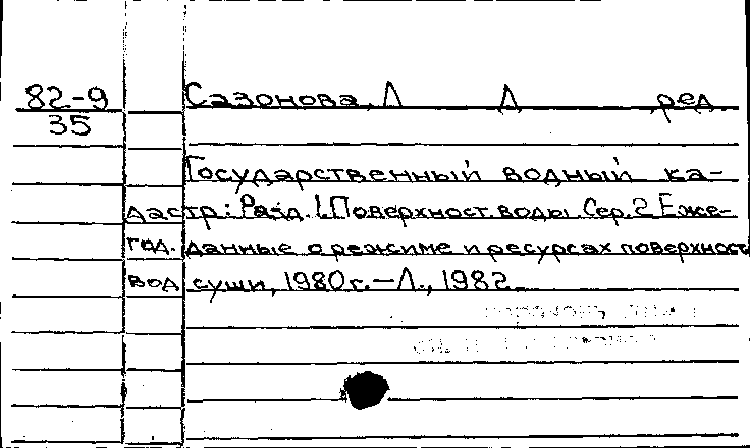 82-9
35
Сазонова, Л Д ред
Государственный водный ка-
дастр: Разд. 1. Поверхност. воды. Сер. 2 Еже-
год. данные о режиме и ресурсах поверхност
вод суши, 1980 г. - Л., 1982.